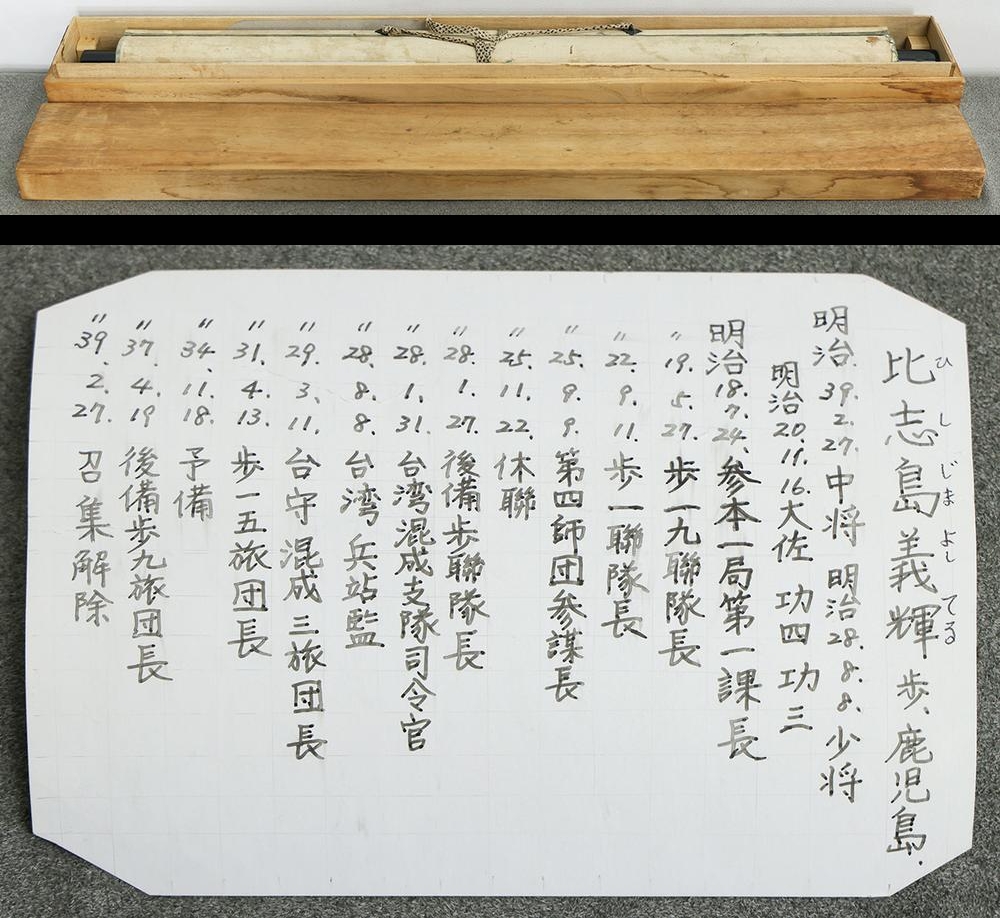 比志島義輝 歩、鹿児島.
ひしじまよしてる
明治.39.2.27.中将 明治28.8.8.少将
明治20.11.16.大佐 功四 功三
明治18.7.24.参本一局第一課長
〃19.5.27.歩一九聯隊長
〃22.9.11.歩一聯隊長
〃25.9.9.第四師団参謀長
〃25.11.22.休聯
〃28.1.27.後備歩聯隊長
〃28.1.31.台湾混成支隊司令官
〃28.8.8.台湾兵站監
〃29.3.11.台守混成三旅団長
〃31.4.13.歩一五旅団長
〃34.11.18.予備
〃37.4.19後備歩九旅団長
〃39.2.27.召集解除